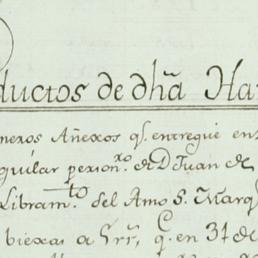 ductos de dha Ha
neros Añexos q.e entregue en
quilar person.xo de D Juan de
Libram.to del Amo S. Marq
biexas a Srs, q. en 31 de